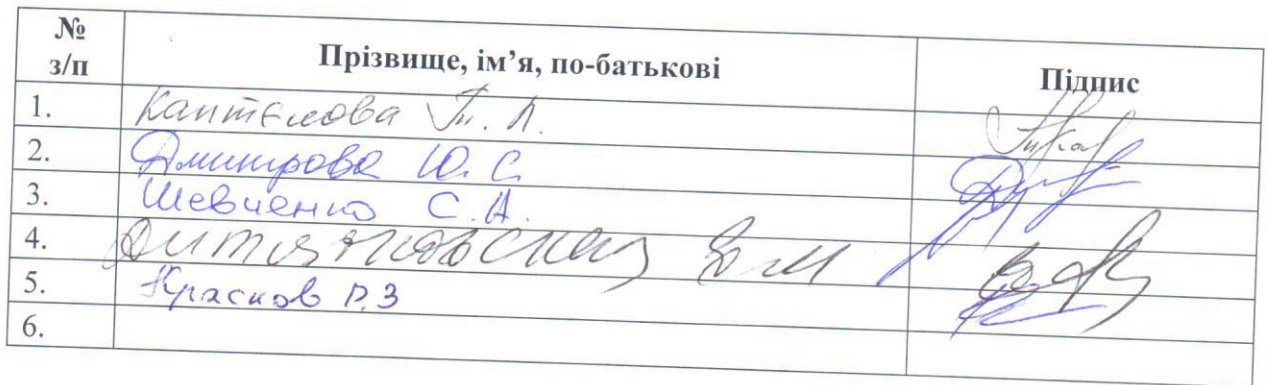 № з/п Прізвище, ім’я, по-батькові Підпис
1. Каптєлова Т. Л.
2. Дмитрова Ю. С.
3. Шевченко С. А.
4.
5. Красков Р.З
6.